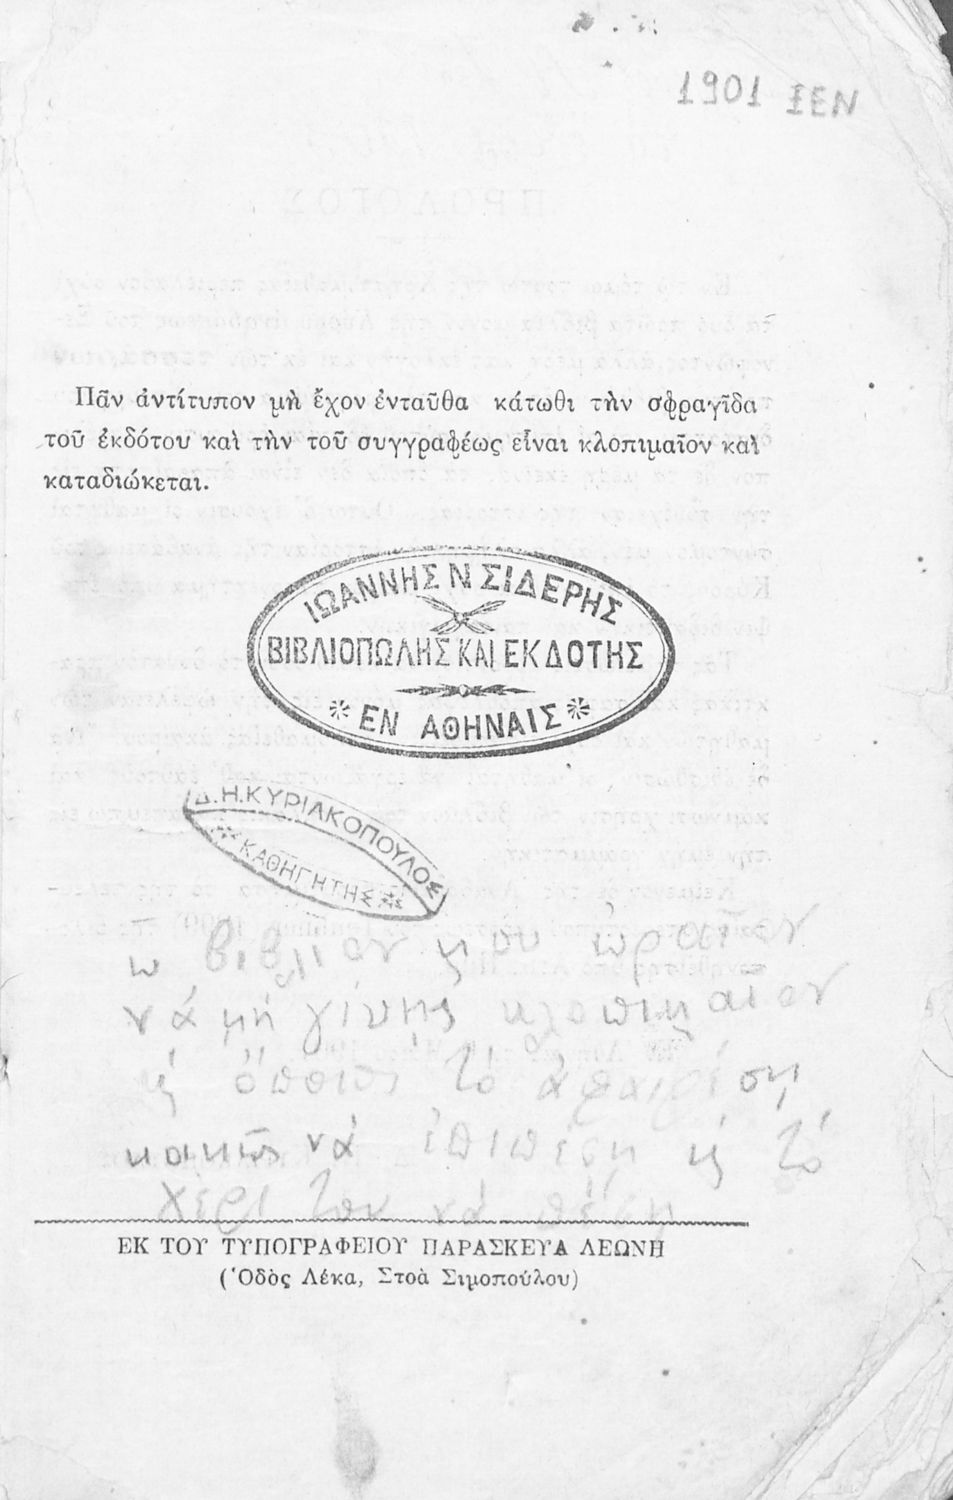 1901 ΞΕΝ
Πᾶν ἀντίτυπον μὴ ἔχον ἐνταῦθα κάτωθι τὴν σφραγῖδα
τοῦ ἐκδότου καὶ τὴν τοῦ συγγραφέως εἶναι κλοπιμαῖον καὶ
καταδιώκεται.
ΙΩΑΝΝΗΣ Ν ΣΙΔΕΡΗΣ
ΒΙΒΛΙΟΠΩΛΗΣ ΚΑΙ ΕΚΔΟΤΗΣ
ΕΝ ΑΘΗΝΑΙΣ
Δ.Η.ΚΥΡΙΑΚΟΠΟΥΛΟΣ
ΚΑΘΗΓΗΤΗΣ
ω βιβλιον μου ὡραῖον
νά μή γίνης κλοπιμαῖον
ὅποιος τὸ ἀφαιρέση
κακῶς νά
χέρι του νά
ΕΚ ΤΟΥ ΤΥΠΟΓΡΑΦΕΙΟΥ ΠΑΡΑΣΚΕΥΑ ΛΕΩΝΗ
(Ὁδὸς Λέκα, Στοὰ Σιμοπούλου)